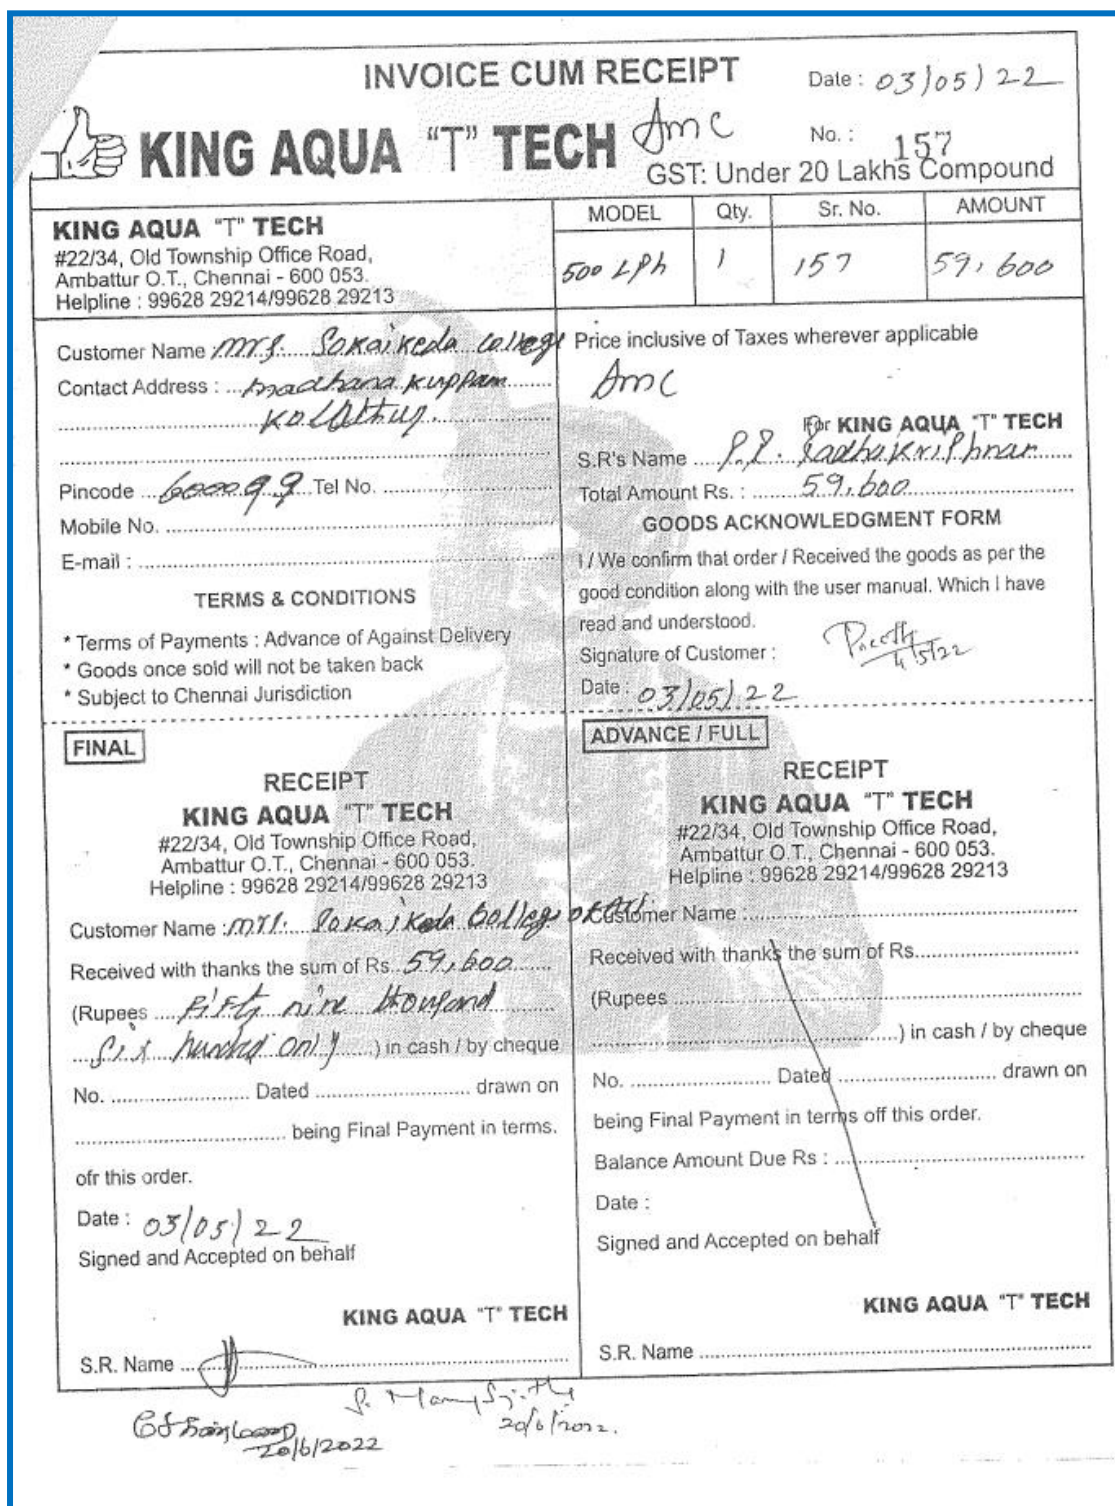 INVOICE CUM RECEIPT
Date : 03/05/22
KING AQUA "T" TECH
Amc
No. : 157
GST: Under 20 Lakhs Compound
KING AQUA "T" TECH
#22/34, Old Township Office Road,
Ambattur O.T., Chennai - 600 053.
Helpline : 99628 29214/99628 29213
MODEL Qty. Sr. No. AMOUNT
500 LPh 1 157 59,600
Customer Name : Mrs. Sokaikeda College
Contact Address : Madhana Kuppam
Kolathur
Pincode 600099 Tel No.
Mobile No.
E-mail :
TERMS & CONDITIONS
* Terms of Payments : Advance of Against Delivery
* Goods once sold will not be taken back
* Subject to Chennai Jurisdiction
Price inclusive of Taxes wherever applicable
Amc
For KING AQUA "T" TECH
S.R's Name P.P. Radhakrishnan
Total Amount Rs. : 59,600
GOODS ACKNOWLEDGMENT FORM
I / We confirm that order / Received the goods as per the
good condition along with the user manual. Which I have
read and understood.
Signature of Customer :
4/5/22
Date : 03/05/22
FINAL
RECEIPT
KING AQUA "T" TECH
#22/34, Old Township Office Road,
Ambattur O.T., Chennai - 600 053.
Helpline : 99628 29214/99628 29213
Customer Name : Mrs. Sokaikeda College of Arts
Received with thanks the sum of Rs. 59,600
(Rupees Fifty nine thousand
Six hundred only ) in cash / by cheque
No. Dated drawn on
being Final Payment in terms.
ofr this order.
Date : 03/05/22
Signed and Accepted on behalf
KING AQUA "T" TECH
S.R. Name
20/6/2022
20/6/2022.
ADVANCE / FULL
RECEIPT
KING AQUA "T" TECH
#22/34, Old Township Office Road,
Ambattur O.T., Chennai - 600 053.
Helpline : 99628 29214/99628 29213
Customer Name :
Received with thanks the sum of Rs.
(Rupees
) in cash / by cheque
No. Dated drawn on
being Final Payment in terms off this order.
Balance Amount Due Rs :
Date :
Signed and Accepted on behalf
KING AQUA "T" TECH
S.R. Name